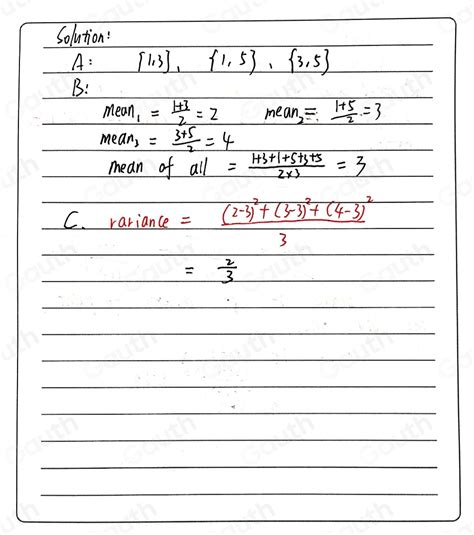 Solution:
A: {1,3}, {1,5}, {3,5}
B:
mean₁ = (1+3)/2 = 2 mean₂ = (1+5)/2 = 3
mean₃ = (3+5)/2 = 4
mean of all = (1+3+1+5+3+5)/(2×3) = 3
C. variance = ((2-3)²+(3-3)²+(4-3)²)/3
= 2/3